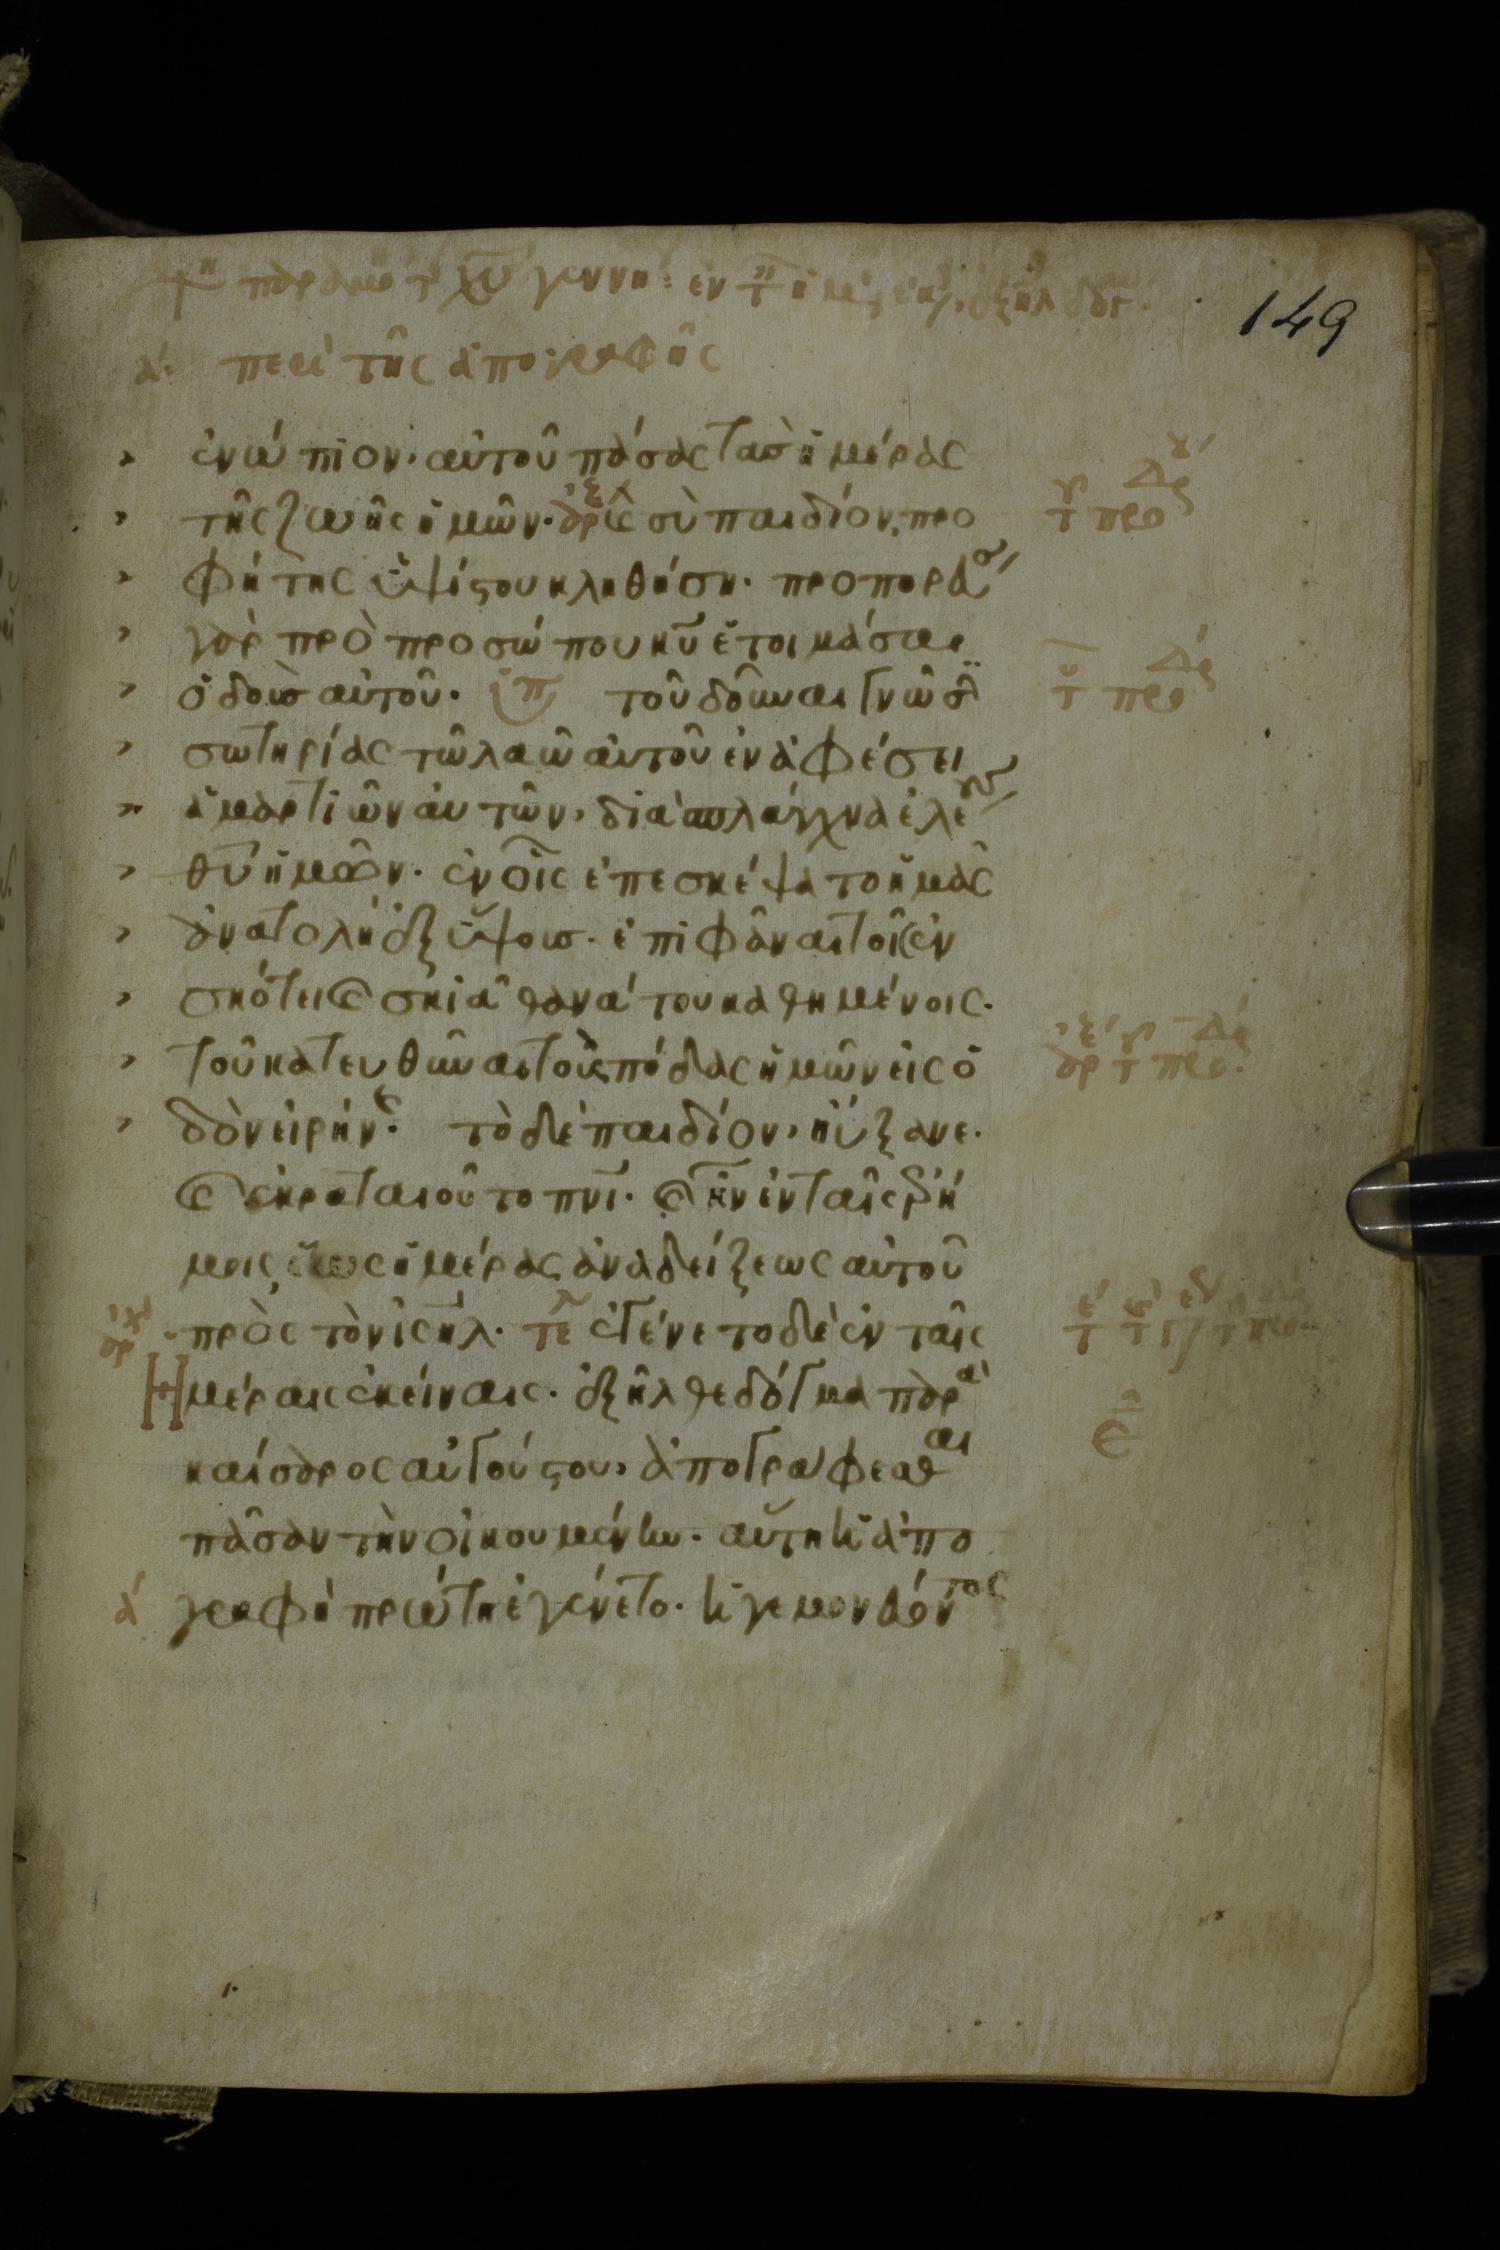 149
ά. περὶ τῆς ἀπογραφῆς
ἐνώπιον αὐτοῦ πάσας τὰς ἡμέρας
τῆς ζωῆς ἡμῶν· ἀρχ σὺ παιδίον, προ
φήτης ὑψίστου κληθήση· προπορεύσ
γὰρ πρὸ προσώπου κυ ἑτοιμάσαι
ὁδοὺς αὐτοῦ· ὑπ τοῦ δοῦναι γνῶσῒ
σωτηρίας τῶ λαῶ αὐτοῦ ἐν ἀφέσει
ἁμαρτιῶν αυτῶν, διὰ σπλάγχνα ἐλέους
θυ ἡμῶν· ἐν οἷς ἐπεσκέψατο ἡμᾶς
ἀνατολὴ ἐξ ὕψους· ἐπιφᾶναι τοῖς ἐν
σκότει κ σκιᾶ θανάτου καθημένοις·
τοῦ κατευθῦναι τοὺς πόδας ἡμῶν εἰς ὁ
δὸν εἰρήνης· τὸ δὲ παιδίον, ηὔξανε·
κ ἐκραταιοῦτο πνι· κ ἦν ἐν ταῖς ἐρή
μοις, ἕως ἡμέρας ἀναδείξεως αὐτοῦ
πρὸς τὸν ἰσηλ· τε ἐγένετο δὲ ἐν ταῖς
Ημέραις ἐκείναις· ἐξῆλθε δόγμα παρὰ
καίσαρος αὐγούστου, ἀπογράφεσθαι
πᾶσαν τὴν οἰκουμένην· αὕτη ἡ ἀπο
ά γραφὴ πρώτη ἐγένετο· ἡγεμονεύοντος